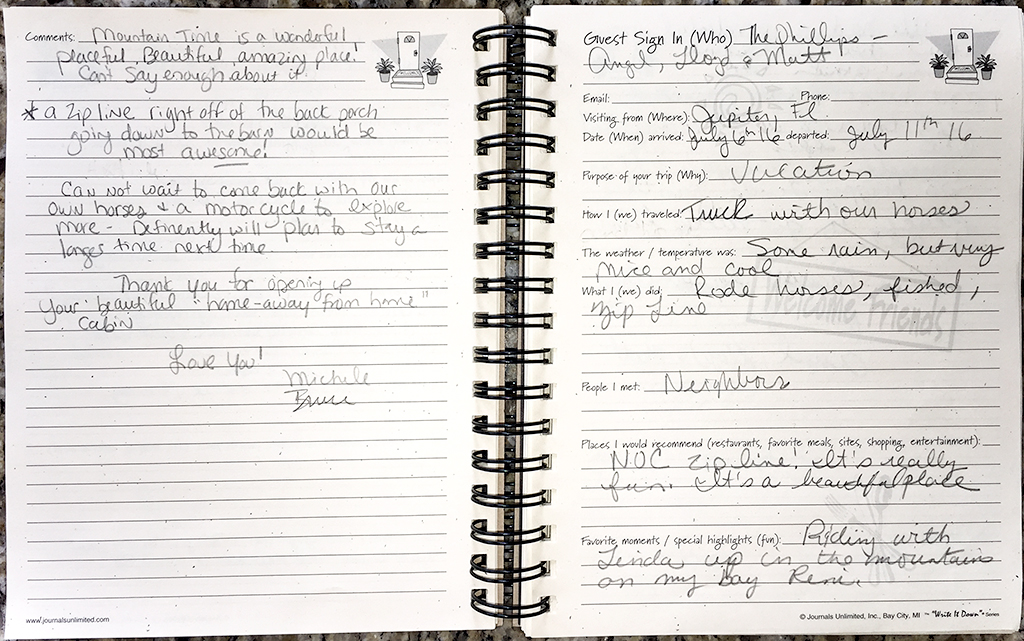 Comments: Mountain Time is a wonderful
peaceful, Beautiful, amazing place!
Can't say enough about it
* a zip line right off of the back porch
going down to the barn would be
most awesome!
Can not wait to come back with our
own horses & a motorcycle to explore
more - Definently will plan to stay a
longer time next time.
Thank you for opening up
your beautiful "home-away from home"
cabin
Love You!
Michele
www.journalsunlimited.com
Guest Sign In (Who) The Phillips -
Angel, Lloyd & Matt
Email: Phone:
Visiting from (Where): Jupiter, Fl
Date (When) arrived: July 6th 16 departed: July 11th 16
Purpose of your trip (Why): Vacation
How I (we) traveled: Truck with our horses
The weather / temperature was: Some rain, but very
nice and cool
What I (we) did: Rode horses, fished,
Zip Line
Welcome Friends
People I met: Neighbors
Places I would recommend (restaurants, favorite meals, sites, shopping, entertainment):
NOC Zip line! It's really
fun. It's a beautiful place
Favorite moments / special highlights (fun): Riding with
Linda up in the mountains
on my bay Remi.
© Journals Unlimited, Inc., Bay City, MI ~ "Write It Down"® Series